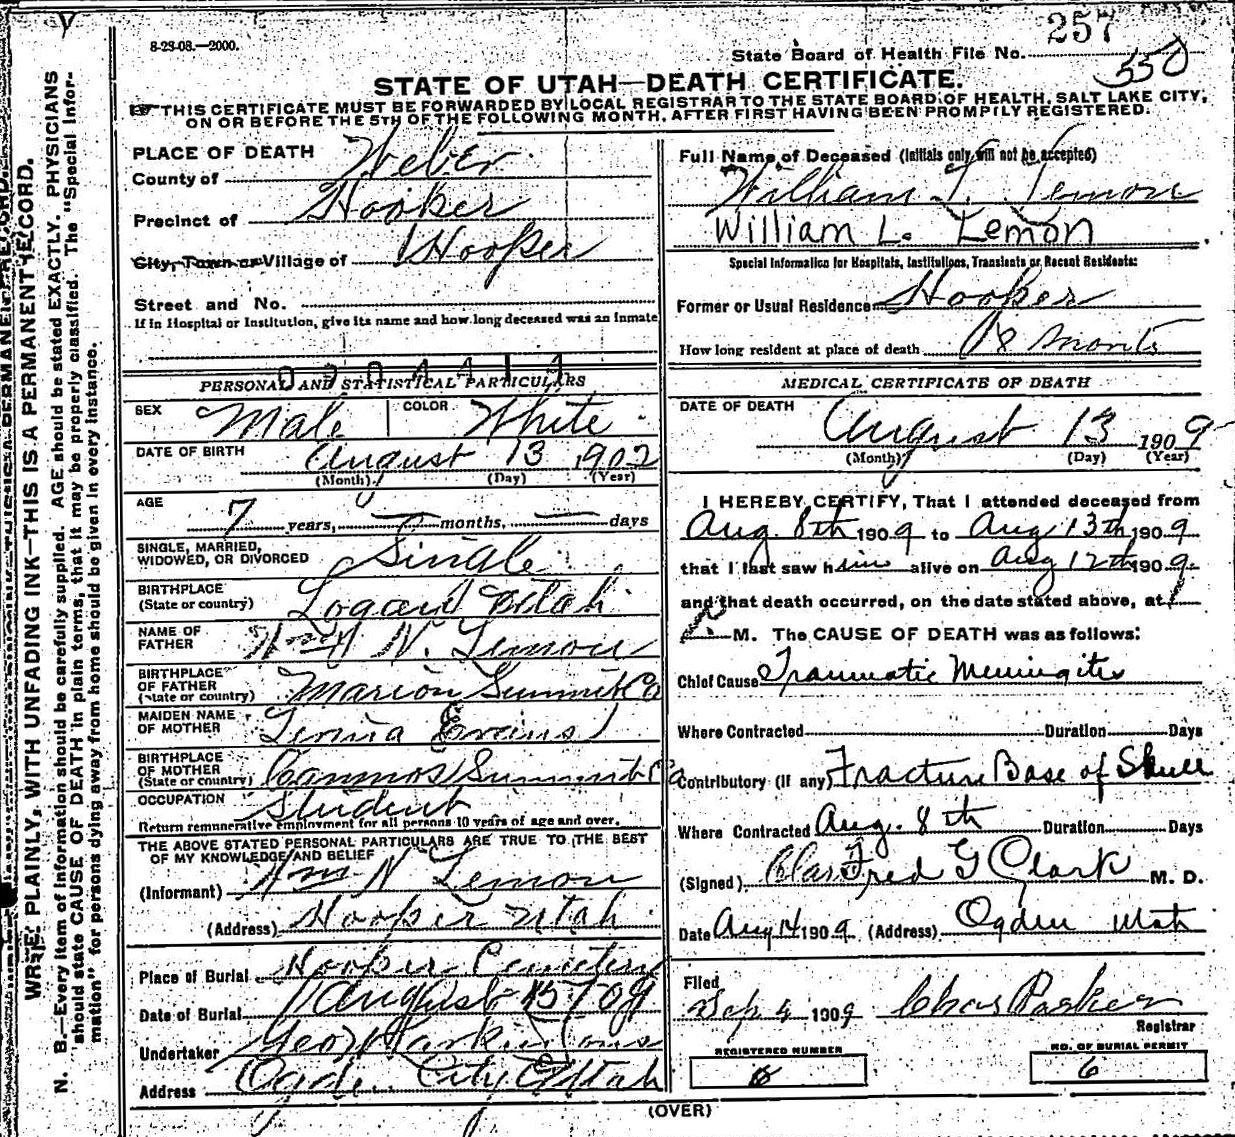 257
8-23-08.—2000.
State Board of Health File No.
350
STATE OF UTAH—DEATH CERTIFICATE.
THIS CERTIFICATE MUST BE FORWARDED BY LOCAL REGISTRAR TO THE STATE BOARD OF HEALTH, SALT LAKE CITY,
ON OR BEFORE THE 5TH OF THE FOLLOWING MONTH, AFTER FIRST HAVING BEEN PROMPTLY REGISTERED.
WRITE PLAINLY, WITH UNFADING INK—THIS IS A PERMANENT RECORD.
N. B.—Every item of information should be carefully supplied. AGE should be stated EXACTLY. PHYSICIANS
should state CAUSE OF DEATH in plain terms, that it may be properly classified. The "Special Infor-
mation" for persons dying away from home should be given in every instance.
PLACE OF DEATH
County of Weber
Precinct of Hooper
City, Town or Village of Hooper
Street and No.
If in Hospital or Institution, give its name and how long deceased was an inmate
PERSONAL AND STATISTICAL PARTICULARS
SEX Male COLOR White
DATE OF BIRTH August 13 1902
(Month) (Day) (Year)
AGE 7 years, — months, — days
SINGLE, MARRIED,
WIDOWED, OR DIVORCED Single
BIRTHPLACE
(State or country) Logan Utah
NAME OF
FATHER Wm N. Lemon
BIRTHPLACE
OF FATHER
(State or country) Marion Summit Co
MAIDEN NAME
OF MOTHER Evans
BIRTHPLACE
OF MOTHER
(State or country) Summit Co
OCCUPATION Student
Return remunerative employment for all persons 10 years of age and over.
THE ABOVE STATED PERSONAL PARTICULARS ARE TRUE TO THE BEST
OF MY KNOWLEDGE AND BELIEF
(Informant) Wm N Lemon
(Address) Hooper Utah
Place of Burial Hooper Cemetery
Date of Burial August 15 / 09
Undertaker Geo W Larkin Sons
Address Ogden City Utah
Full Name of Deceased (Initials only will not be accepted)
William L. Lemon
William L. Lemon
Special Information for Hospitals, Institutions, Transients or Recent Residents:
Former or Usual Residence Hooper
How long resident at place of death 18 months
MEDICAL CERTIFICATE OF DEATH
DATE OF DEATH
August 13 1909
(Month) (Day) (Year)
I HEREBY CERTIFY, That I attended deceased from
Aug. 8th 1909 to Aug 13th, 1909
that I last saw him alive on Aug 12th 1909
and that death occurred, on the date stated above, at
M. The CAUSE OF DEATH was as follows:
Chief Cause Traumatic Meningitis
Where Contracted Duration Days
Contributory (if any) Fracture Base of Skull
Where Contracted Aug. 8th Duration Days
(Signed) Fred G Clark M. D.
Date Aug 14 1909 (Address) Ogden Utah
Filed
Sep 4 1909 Chas Parker
Registrar
REGISTERED NUMBER
6
NO. OF BURIAL PERMIT
6
(OVER)